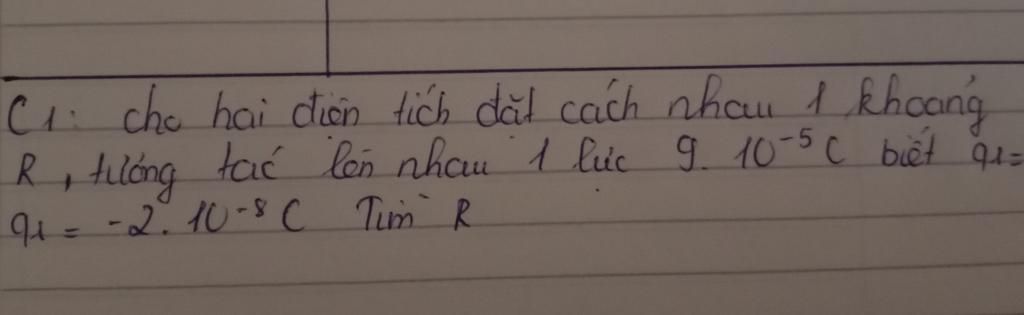 C1: cho hai điện tích đặt cách nhau 1 khoảng
R, tương tác lên nhau 1 lực 9. 10⁻⁵ C biết q1=
q1 = -2. 10⁻⁸ C Tìm R